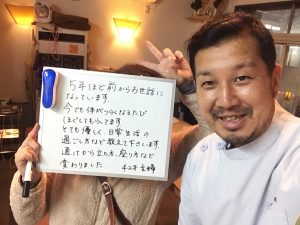 5年ほど前からお世話に
なっています
今でも体がつらくなるたび
ほぐしてもらってます。
とても優しく、日常生活の
過ごし方など教えて下さいます。
通ってから立ち方、座り方など
変わりました。 42才 主婦